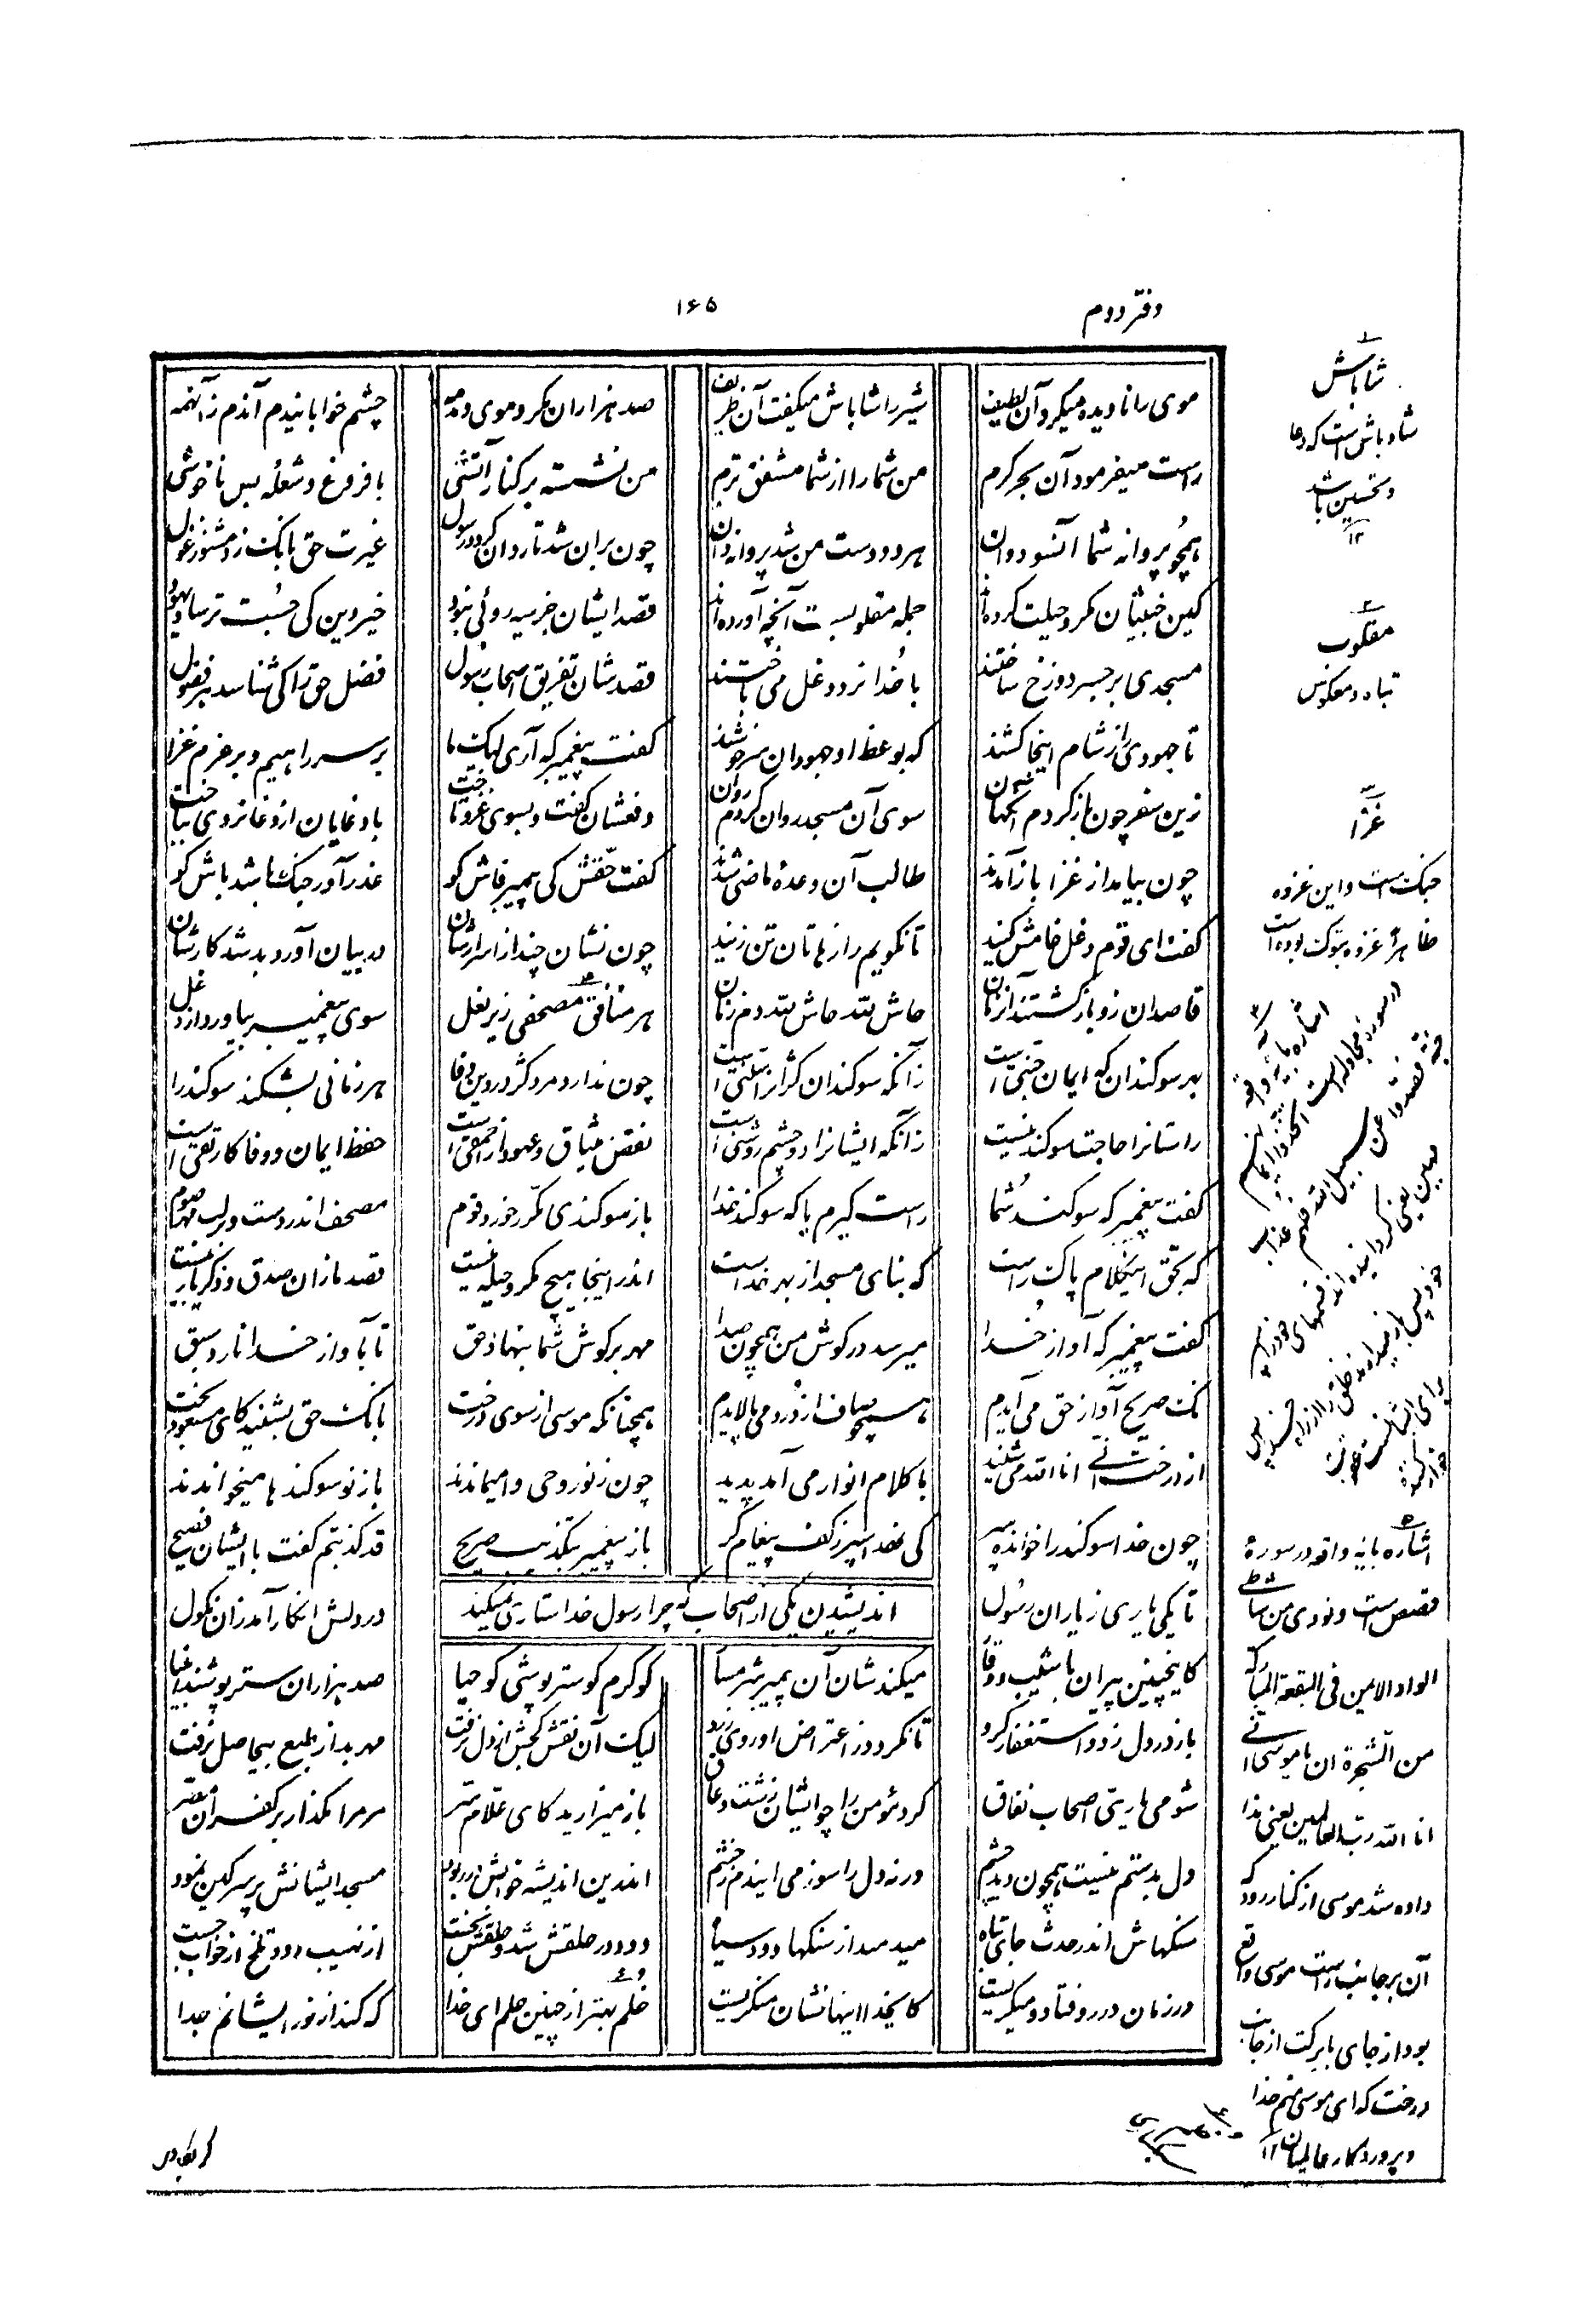 دفتر دوم
۱۶۵
موی را نادیده میکرد آن لطیف شیر را شاباش میگفت آن ظریف صد هزاران مکر و موی و دمدمه چشم خوابانیدم آندم زآنهمه
راست میفرمود آن بحر کرم من شما را از شما مشفق ترم من نشسته بر کنار آتشی با فروغ و شعله بس ناخوشی
همچو پروانه شما آنسو دوان هر دو دست من شد پروانه ران چون بران شد تا روان گردد رسول غیرت حق بانک زد مشنو زغول
کین خبیثان مکر و حیلت کرده‌اند جمله مقلوبست آنچه آورده‌اند قصد ایشان جز سیه روئی نبود خیر دین کی جست ترسا و یهود
مسجدی بر جسر دوزخ ساختند با خدا نرد دغل می باختند قصدشان تفریق اصحاب رسول فضل حق را کی شناسد هر فضول
تا جهودی را زشام اینجا کشند که بوعظ او جهودان سرخوشند گفت پیغمبر که آری لیک ما بر سر راهیم و بر عزم غزا
زین سفر چون باز گردم آنگهان سوی آن مسجد روان گردم روان دفعشان گفت و بسوی غزو تاخت با دغایان از دغا نردی بباخت
چون بیامد از غزا باز آمدند طالب آن وعده ماضی شدند گفت حقش کی پیمبر فاش گو عذر آور جنک باشد باش گو
گفت ای قوم دغل خامش کنید تا نگویم رازهاتان تن زنید چون نشان چند از اسرارشان در بیان آورد بد شد کارشان
قاصدان زو باز گشتند آنزمان حاش لله حاش لله دم زنان هر منافق مصحفی زیر بغل سوی پیغمبر بیاورد از دغل
بهر سوگندان که ایمان جنتی است زآنکه سوگندان کژان را سنتی است چون ندارد مرد کژ در دین وفا هر زمانی بشکند سوگند را
راستانرا حاجت سوگند نیست زآنکه ایشانرا دو چشم روشنی است نقض میثاق و عهود از احمقی است حفظ ایمان و وفا کار تقی است
گفت پیغمبر که سوگند شما راست گیرم یا که سوگند خدا باز سوگندی مکرر خورد قوم مصحف اندر دست و بر لب مهر صوم
که بحق اینکلام پاک راست که بنای مسجد از بهر خداست اندر اینجا هیچ مکر و حیله نیست قصد ما زان صدق و ذکر یاربیست
گفت پیغمبر که آواز خدا میرسد در گوش من همچون صدا مهر بر گوش شما بنهاد حق تا بآواز خدا نارد سبق
نک صریح آواز حق می آیدم همچو صاف از درد می پالایدم همچنانکه موسی از سوی درخت بانک حق بشنید کای مسعود بخت
از درخت انی انا الله می شنید با کلام انوار می آمد پدید چون زنور وحی وامیماندند باز نو سوگندها میخواندند
چون خدا سوگند را خوانده سپر کی نهد اسپر زکف پیغام گر باز پیغمبر بتکذیب صریح قد کذبتم گفت با ایشان فصیح
اندیشیدن یکی از اصحاب که چرا رسول خدا ستاری نمیکند
تا یکی یاری زیاران رسول در دلش انکار آمد زان نکول
کاینچنین پیران با شیب و وقا میکندشان آن پیمبر شرمسا کو کرم کو ستر پوشی کو حیا صد هزاران ستر پوشند انبیا
باز در دل زود استغفار کرد تا نگردد زاعتراض او روی زرد لیک آن نقش کجش از دل نرفت مهر بد از طبع بیحاصل نرفت
شومی یاری اصحاب نفاق کرد مؤمن را چو ایشان زشت و عاق باز میزارید کای علام سر مر مرا مگذار بر کفران مصر
دل بدستم نیست همچون دید چشم ورنه دل را سوزمی ایندم زخشم اندرین اندیشه خوابش در ربود مسجد ایشانش پر سرگین نمود
سنگهاش اندر حدث جای تباه میدمید از سنگها دود سیاه دود در حلقش شد و حلقش بخست از نهیب دود تلخ از خواب جست
در زمان در رو فتاد و میگریست کایخدا اینها نشان منکریست خلم بهتر از چنین حلم ای خدا که کند از نور ایشانم جدا
۱
شاباش
شاد باش است که دعا
و تحسین باشد
۱۲
۲
مقلوب
تباه و معکوس
۳
غزا
جنک است و این غزوه
ظاهراً غزوه تبوک بوده است
۴
اشاره بآیه واقعه
در سوره مجادله است اتخذوا ایمانهم
جنة فصدوا عن سبیل الله فلهم عذاب
مهین یعنی گردانیده اند قسمهای خود را سپر
خود پس باز میدارند خلق را از راه خدا پس
برای ایشانست عذاب
خوار کننده
۵
اشاره بآیه واقعه در سوره
قصص است و نودی من شاطی
الواد الایمن فی البقعة المبارکة
من الشجرة ان یا موسی انی
انا الله رب العالمین یعنی ندا
داده شد موسی از کنار رود که
آن بر جانب راست موسی واقع
بود از جای با برکت از جانب
درخت که ای موسی منم خدا
و پروردگار عالمیان ۱۲